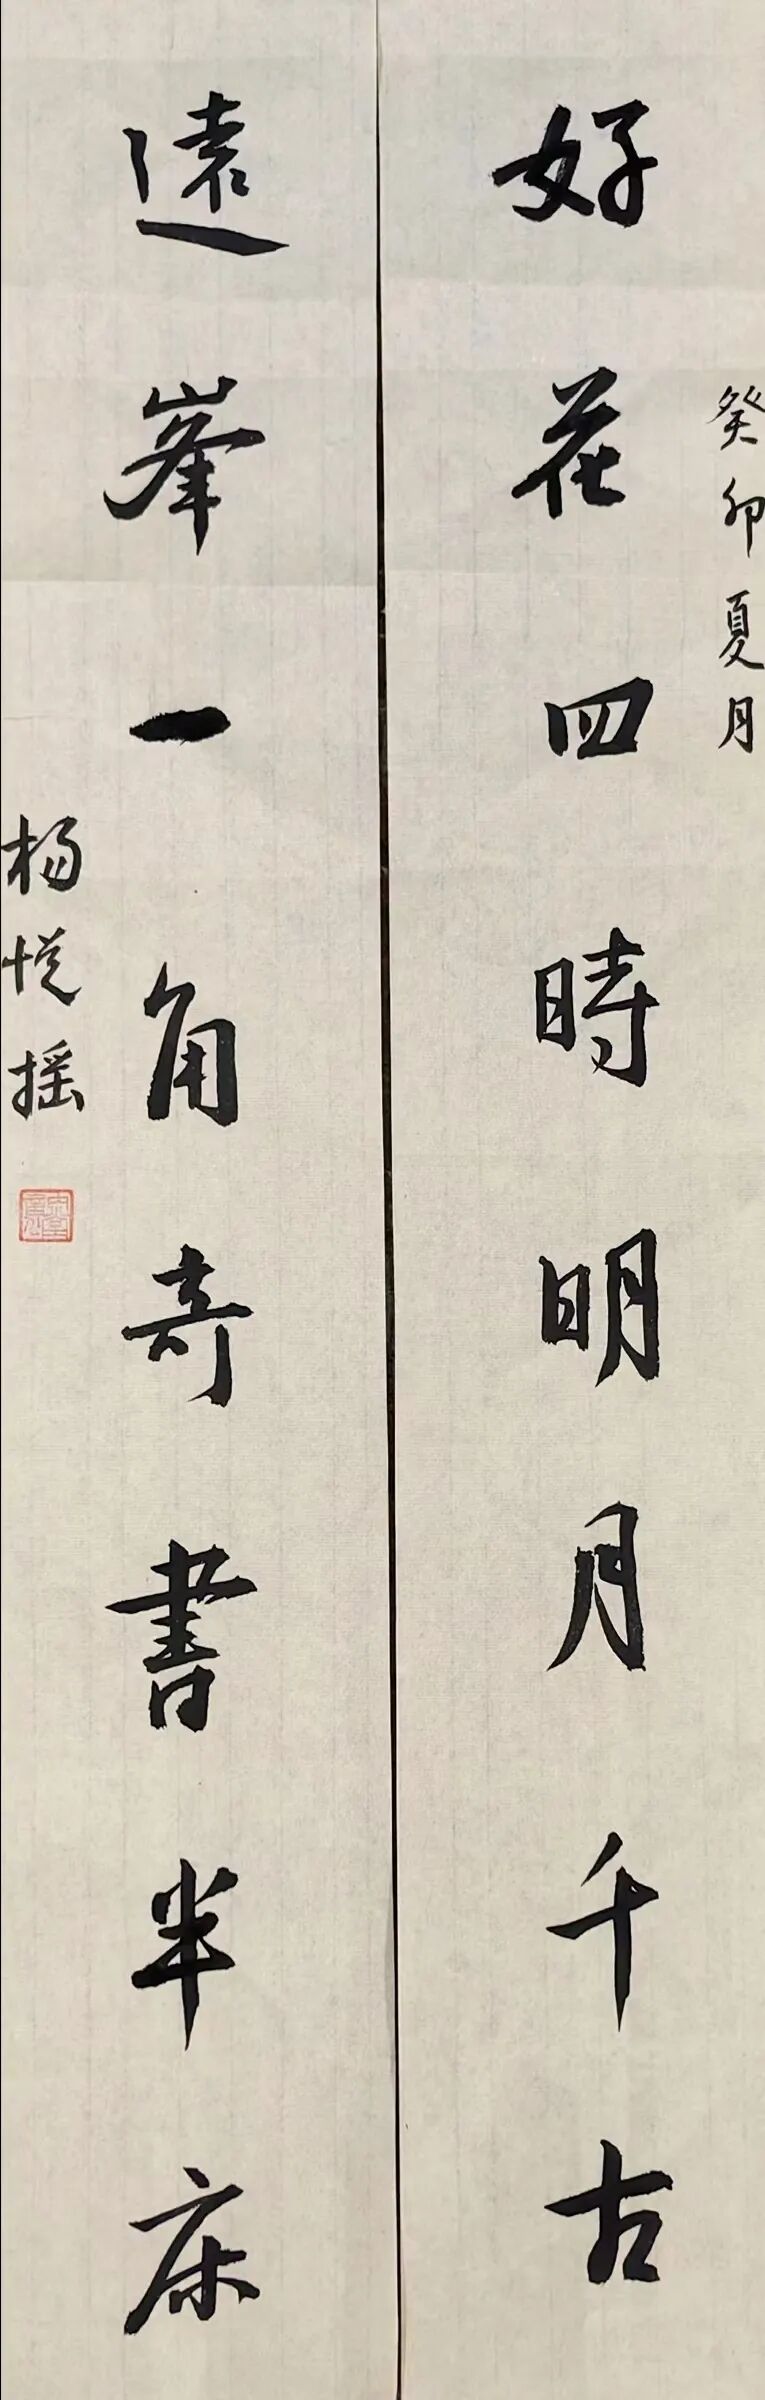 癸卯夏月
好花四時明月千古
遠峯一角奇書半床
杨悦摇